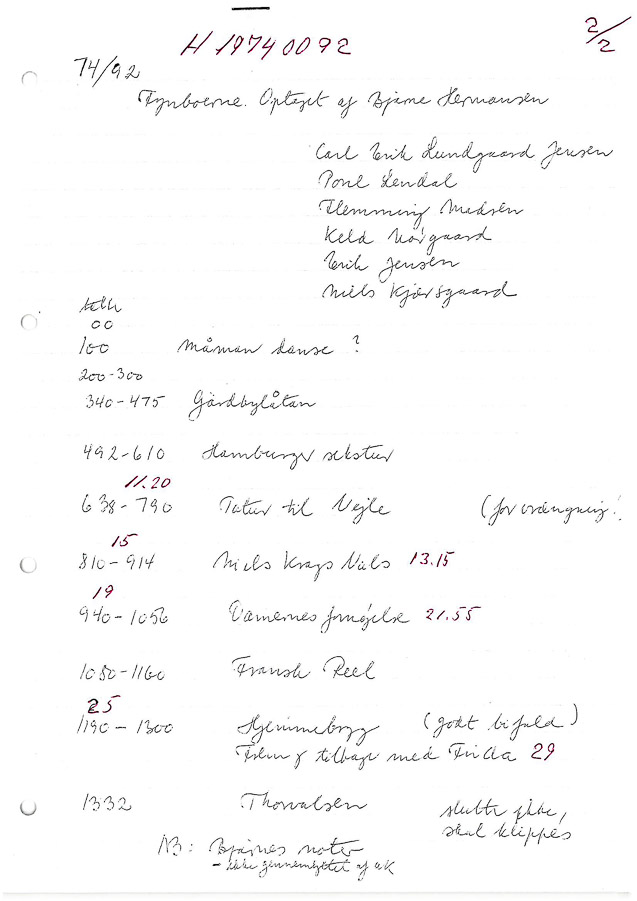 2/2
H 19740092
74/92
Fynboerne. Optaget af Bjarne Hermansen
Carl Erik Lundgaard Jensen
Poul Lendal
Flemming Madsen
Keld Nørgaard
Erik Jensen
Niels Kjærsgaard
00
100 Måman danse ?
200-300
340-475 Gärdbylåtan
492-610 Hamburger sekstur
11.20
638-790 Tatur til Vejle (for
15
810-914 Niels Krags Vals 13.15
19
940-1056 Damernes fornøjelse 21.55
1080-1160 Fransk Reel
25
1190-1300 Hjemmebryg (godt bifald)
tilbage med Frida 29
1332 Thorvalsen slutter ikke,
skal klippes
NB: Bjarnes noter
- ikke gennemlyttet af